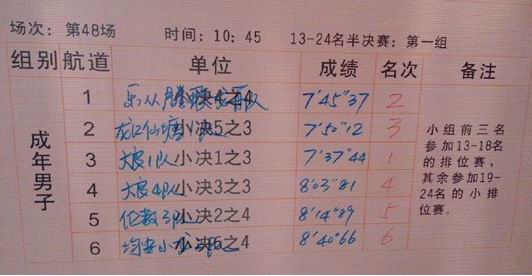 场次: 第48场 时间: 10: 45 13-24名半决赛: 第一组
组别 航道 单位 成绩 名次 备注
成年男子
1 小决4之4 7'45"37 2
2 龙口仙塘 小决5之3 7'50"12 3
3 大良1队 小决1之3 7'37"44 1
4 大良4队 小决3之3 8'03"81 4
5 伦教3队 小决2之4 8'14"89 5
6 均安 小决6之4 8'40"66 6
小组前三名
参加13-18名
的排位赛,
其余参加19-
24名的小排
位赛。